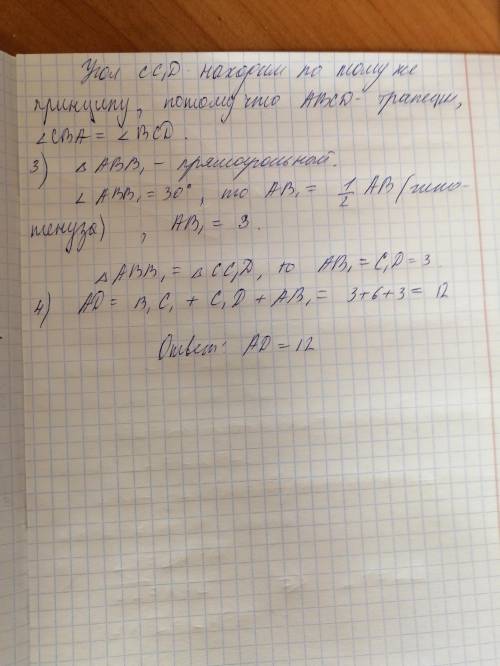 Угол CC₁D находим по тому же
принципу, потому что ABCD - трапеция,
∠CBA = ∠BCD.
3) △ABB₁ - прямоугольный.
∠ABB₁ = 30°, то AB₁ = 1/2 AB (гипо-
тенуза), AB₁ = 3.
△ABB₁ = △CC₁D, то AB₁ = C₁D = 3
4) AD = B₁C₁ + C₁D + AB₁ = 3+6+3 = 12
Ответ: AD = 12